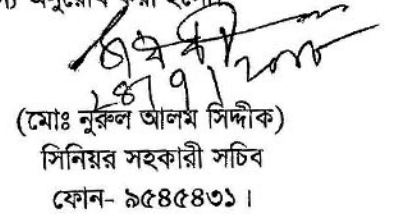 অনুরোধ করা হলো।
(মোঃ নুরুল আলম সিদ্দীক)
সিনিয়র সহকারী সচিব
ফোন- ৯৫৪৫৪৩১।